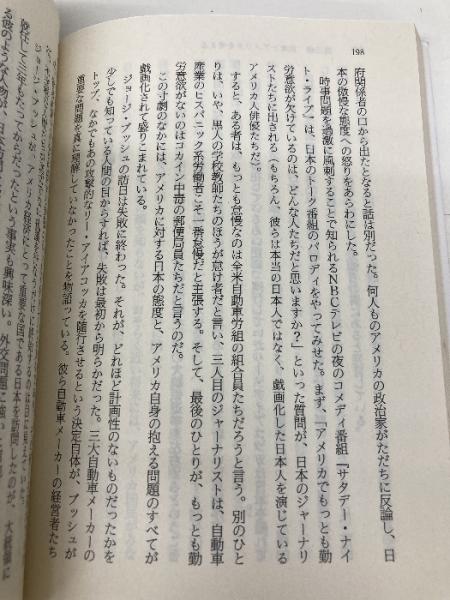 198
府関係者の口から出たとなると話は別だった。何人ものアメリカの政治家がただちに反論し、日
本の傲慢な態度への怒りをあらわにした。
時事問題を過激に風刺することで知られるNBCテレビの夜のコメディ番組『サタデー・ナイ
ト・ライブ』は、日本のトーク番組のパロディをやってみせた。まず、「アメリカでもっとも勤
労意欲が欠けているのは、どんな人たちだと思いますか？」といった質問が、日本のジャーナリ
ストたちに出される（もちろん、彼らは本当の日本人ではなく、戯画化した日本人を演じている
アメリカ人俳優たちだ）。
すると、ある者は、もっとも怠慢なのは全米自動車労組の組合員たちだろうと言う。別のひと
りは、いや、黒人の学校教師たちのほうが怠け者だと言い、三人目のジャーナリストは、自動車
産業のヒスパニック系労働者こそ一番怠慢だと主張する。そして、最後のひとりが、もっとも勤
労意欲がないのはコカイン中毒の郵便局員たちだと言うのだ。
この寸劇のなかには、アメリカに対する日本の態度と、アメリカ自身の抱える問題のすべてが
戯画化されて盛りこまれている。
ジョージ・ブッシュの訪日は失敗に終わった。それが、どれほど計画性のないものだったかを
少しでも知っている人間の目からすれば、失敗は最初から明らかだった。三大自動車メーカーの
トップ、なかでもあの攻撃的なリー・アイアコッカを随行させるという決定自体が、ブッシュが
重要な問題を真に理解していなかったことを物語っている。彼ら自動車メーカーの経営者たち
ジョージ・ブッシュが、アメリカ経済にとって重要な国である日本を訪問したのが、大統領に
就任して三年もたってからだったという事実も興味深い。外交問題に強い